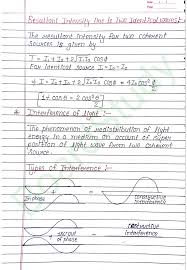 Resultant Intensity Due to Two Identical Waves :-
The resultant intensity for two coherent
sources is given by
I = I₁ + I₂ + 2√I₁I₂ cosϕ
For identical source I₁ = I₂ = I₀
I = I₀ + I₀ + 2√I₀I₀ cosϕ = 4I₀cos² ϕ/2
[1 + cosθ = 2cos² θ/2]
* Interference of Light :-
The phenomenon of redistribution of light
energy in a medium on account of super
position of light wave from two coherent
source.
Types of Interference :-
+ =
In phase
constructive
interference
+ =
out of
phase
Destructive
Interference